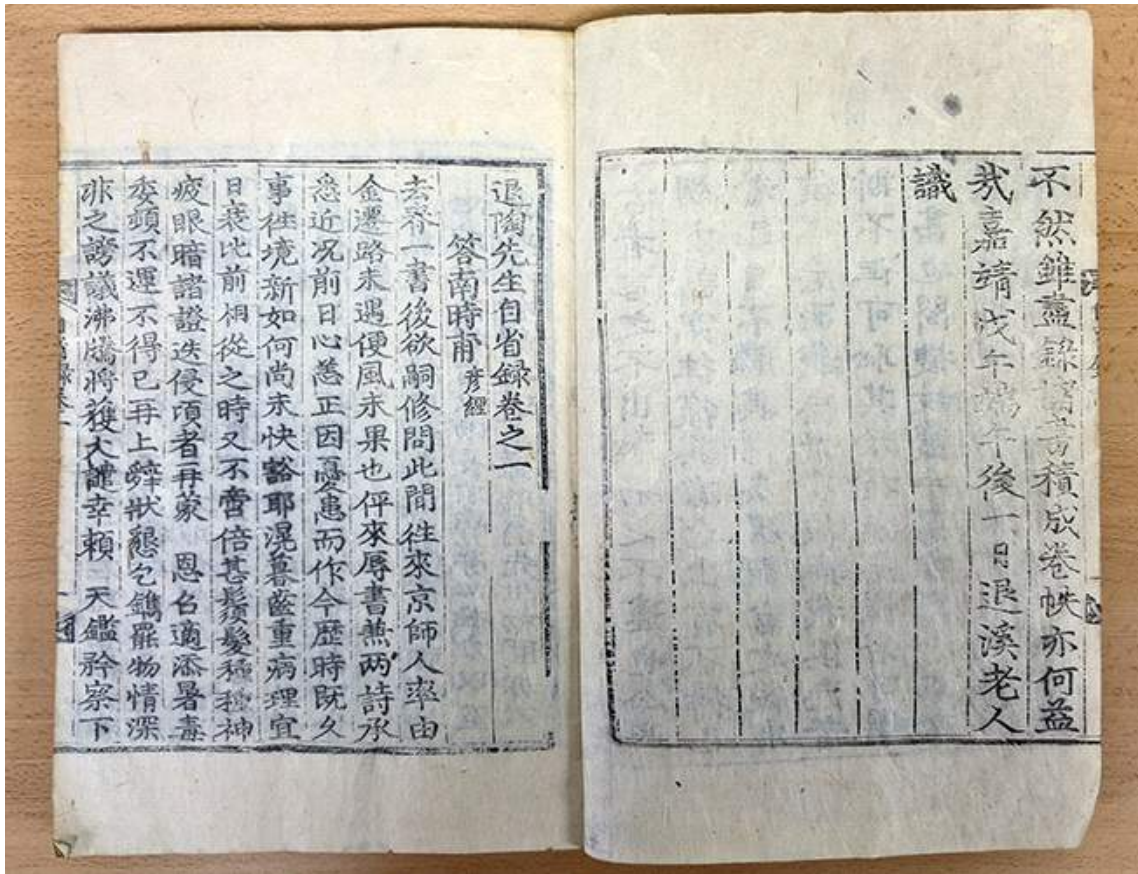 不然雖盡錄諸書積成卷帙亦何益
㢤嘉靖戊午端午後一日退溪老人
識
退陶先生自省録卷之一
答南時甫彦經
去养一書後欲嗣修問此間徃來京師人率由
金遷路未遇便風未果也伻來辱書𠔥两詩承
悉近况前日心恙正因憂患而作今歷時既久
事徃境新如何尚未快豁耶滉暮齒重病理宜
日衰比前相從之時又不啻倍甚鬚髮種種神
疲眼暗諸證迭侵頃者再蒙 恩召適添暑毒
委頓不運不得已再上辭狀懇乞鐫罷物情深
非之謗議沸騰將獲大譴幸賴 天鑑矜察下